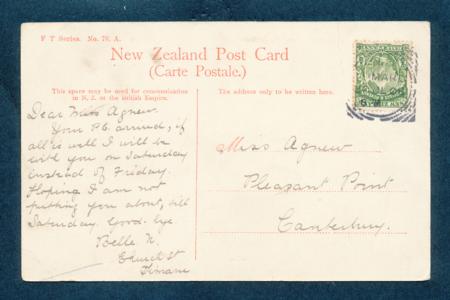 F T Series. No. 78. A.
New Zealand Post Card
(Carte Postale.)
This space may be used for communication
in N.Z. or the British Empire.
The address only to be written here.
Dear Miss Agnew
Your P.C. arrived, if
all is well I will be
with you on Saturday
instead of Friday.
Hoping I am not
putting you about, till
Saturday. Good-bye.
Belle N.
Church St
Timaru
Miss Agnew
Pleasant Point
Canterbury.